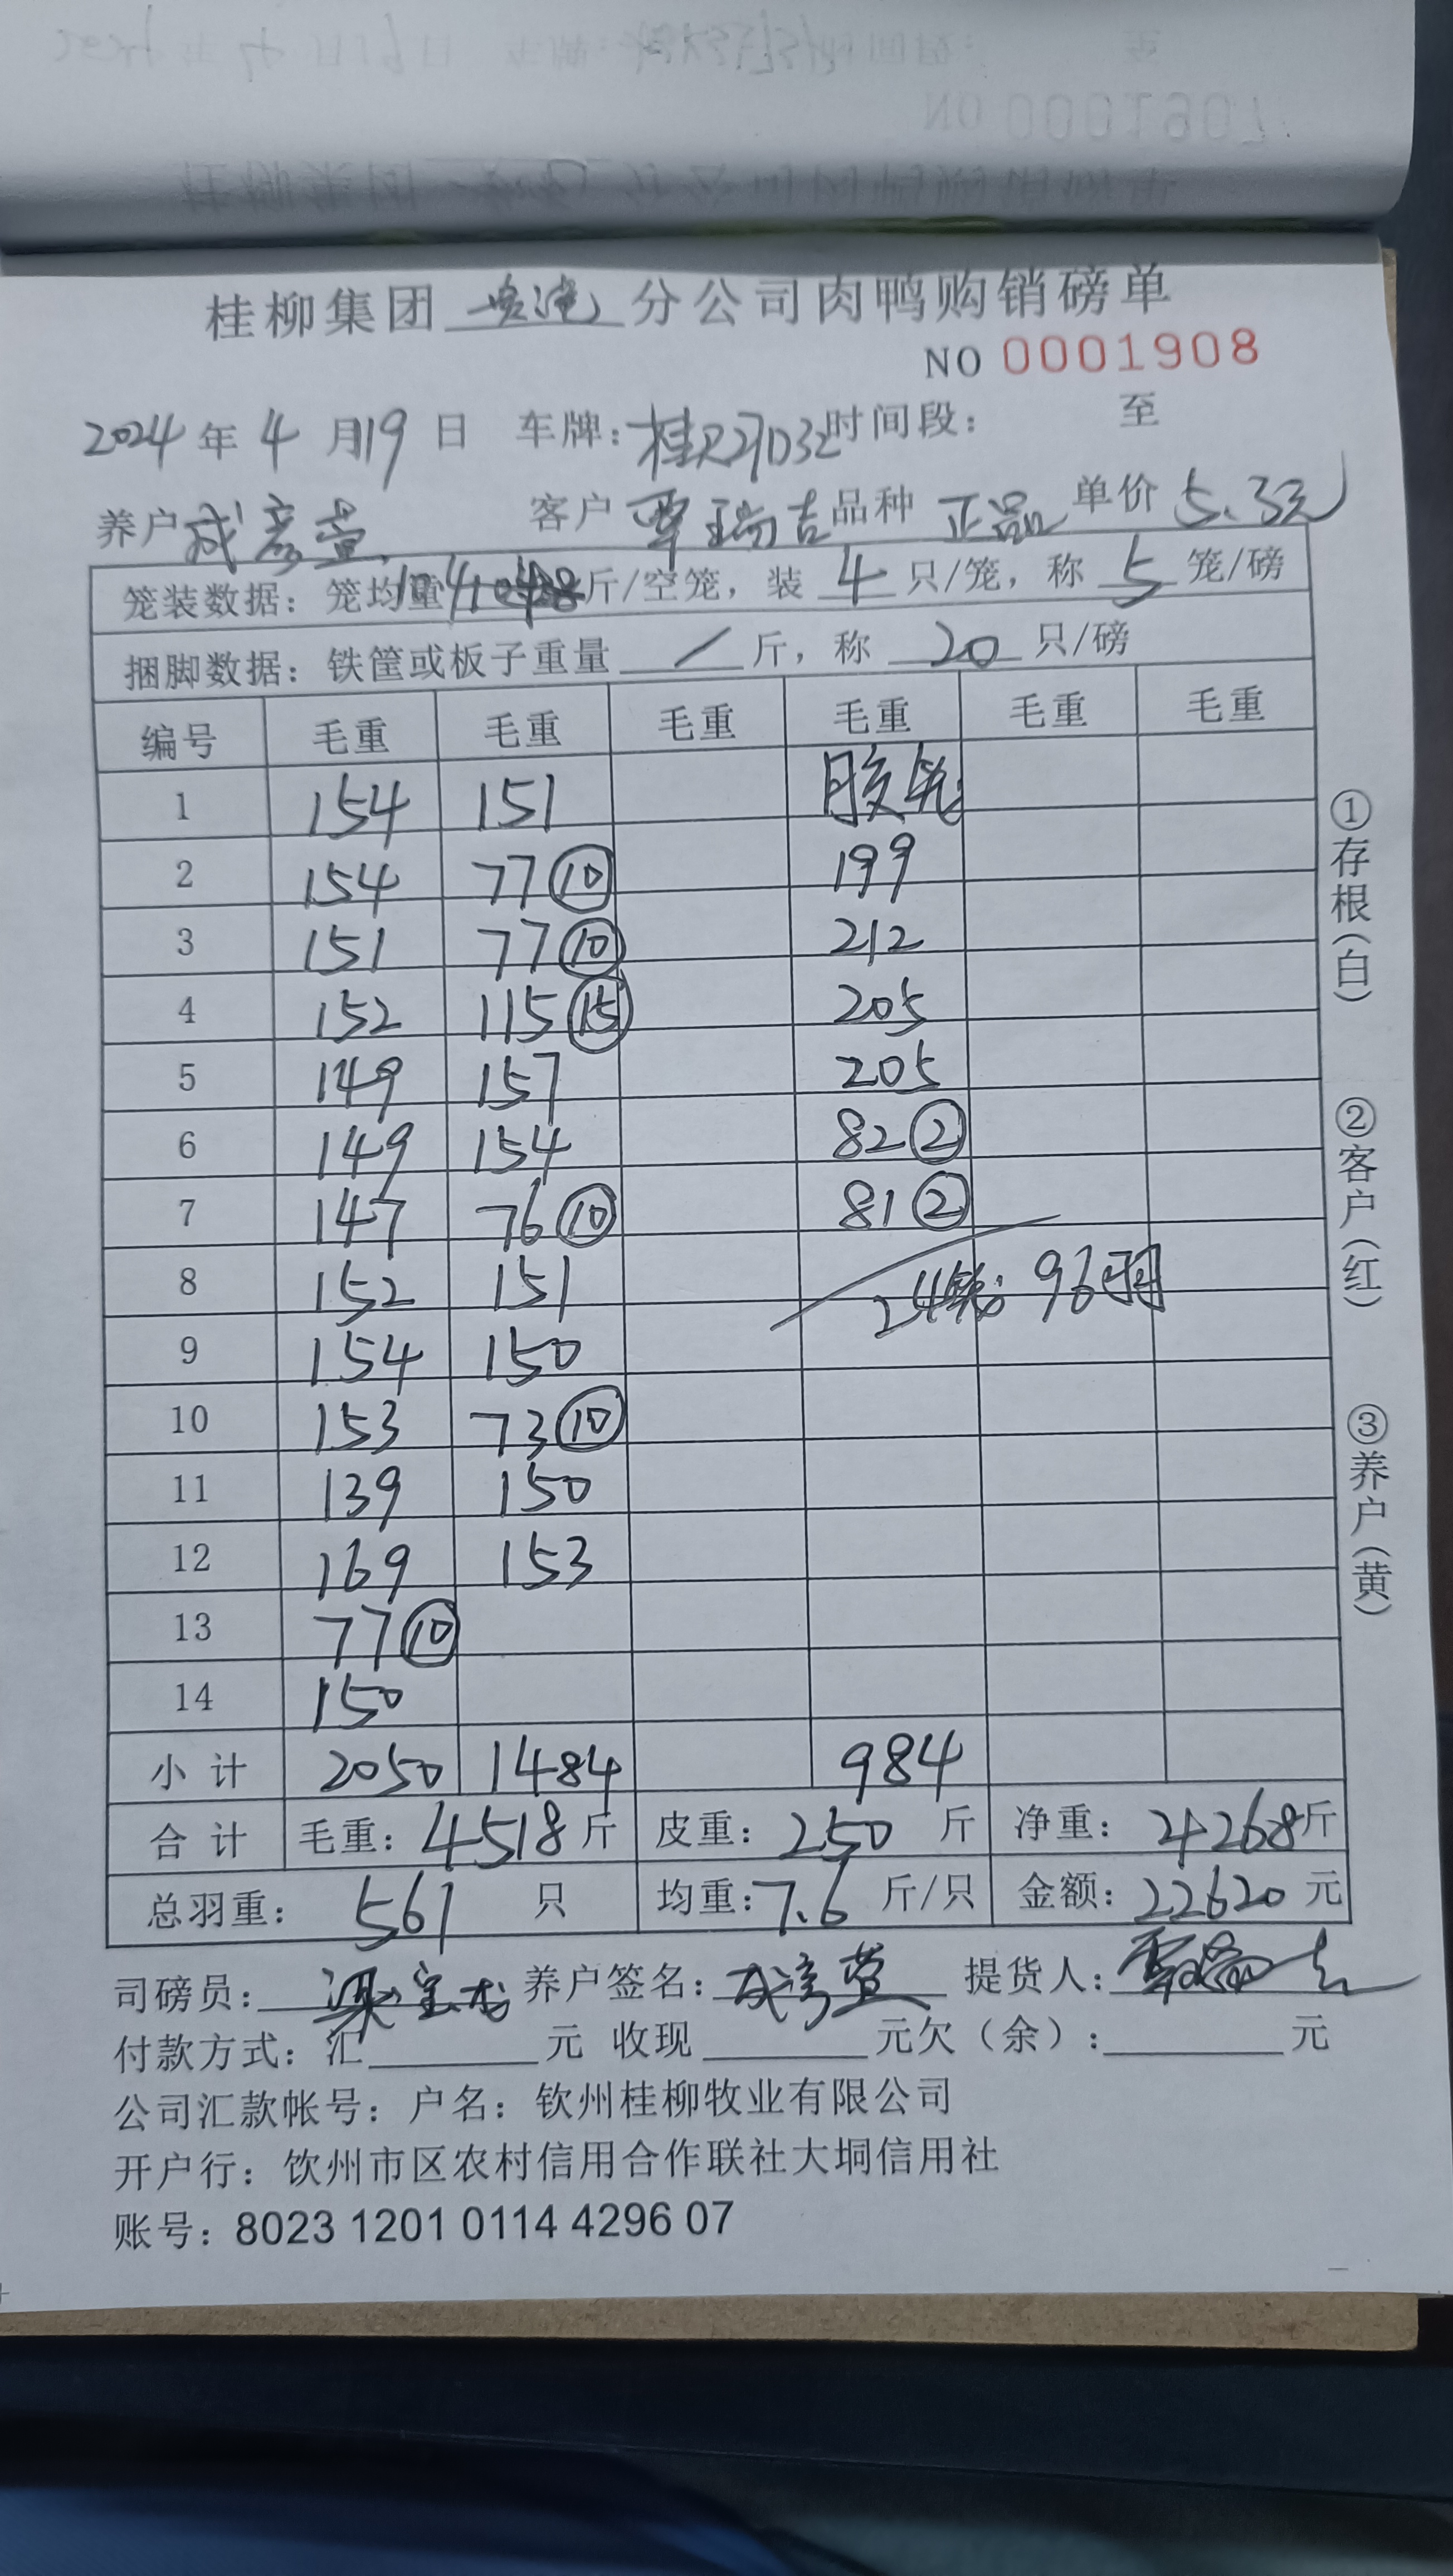 桂柳集团 分公司肉鸭购销磅单
NO 0001908
2024年4月19日 车牌：桂 时间段： 至
养户 成彦萱 客户 覃瑞吉 品种 正品 单价 5.3元
笼装数据：笼均重 10.4 斤/空笼，装 4 只/笼，称 5 笼/磅
捆脚数据：铁筐或板子重量 / 斤，称 20 只/磅
编号 毛重 毛重 毛重 毛重 毛重 毛重
1 154 151 胶笼
2 154 77⑩ 199
3 151 77⑩ 212
4 152 115⑮ 205
5 149 157 205
6 149 154 82②
7 147 76⑩ 81②
8 152 151 24笼 96羽
9 154 150
10 153 73⑩
11 139 150
12 169 153
13 77⑩
14 150
小计 2050 1484 984
合计 毛重：4518斤 皮重：250斤 净重：4268斤
总羽重：561只 均重：7.6斤/只 金额：22620元
司磅员：梁宝龙 养户签名：成彦萱 提货人：覃瑞吉
付款方式：汇 元 收现 元欠（余）： 元
公司汇款帐号：户名：钦州桂柳牧业有限公司
开户行：饮州市区农村信用合作联社大垌信用社
账号：8023 1201 0114 4296 07
①存根（白）
②客户（红）
③养户（黄）